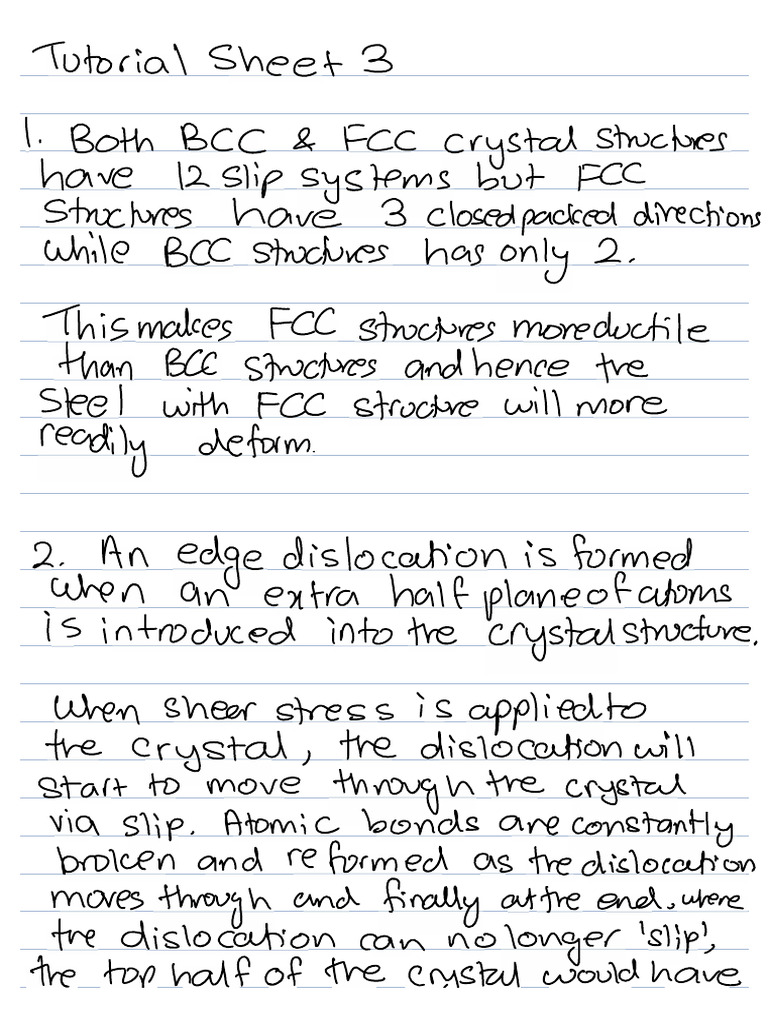 Tutorial Sheet 3
1. Both BCC & FCC crystal structures
have 12 slip systems but FCC
structures have 3 closed packed directions
while BCC structures has only 2.
This makes FCC structures more ductile
than BCC structures and hence the
steel with FCC structure will more
readily deform.
2. An edge dislocation is formed
when an extra half plane of atoms
is introduced into the crystal structure.
When sheer stress is applied to
the crystal, the dislocation will
start to move through the crystal
via slip. Atomic bonds are constantly
broken and reformed as the dislocation
moves through and finally at the end, where
the dislocation can no longer 'slip',
the top half of the crystal would have